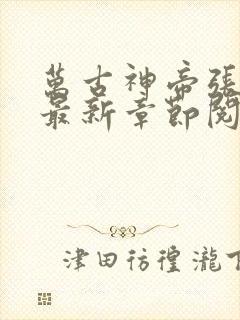 萬古神帝張
最新章節閱
津田彷徨瀧下